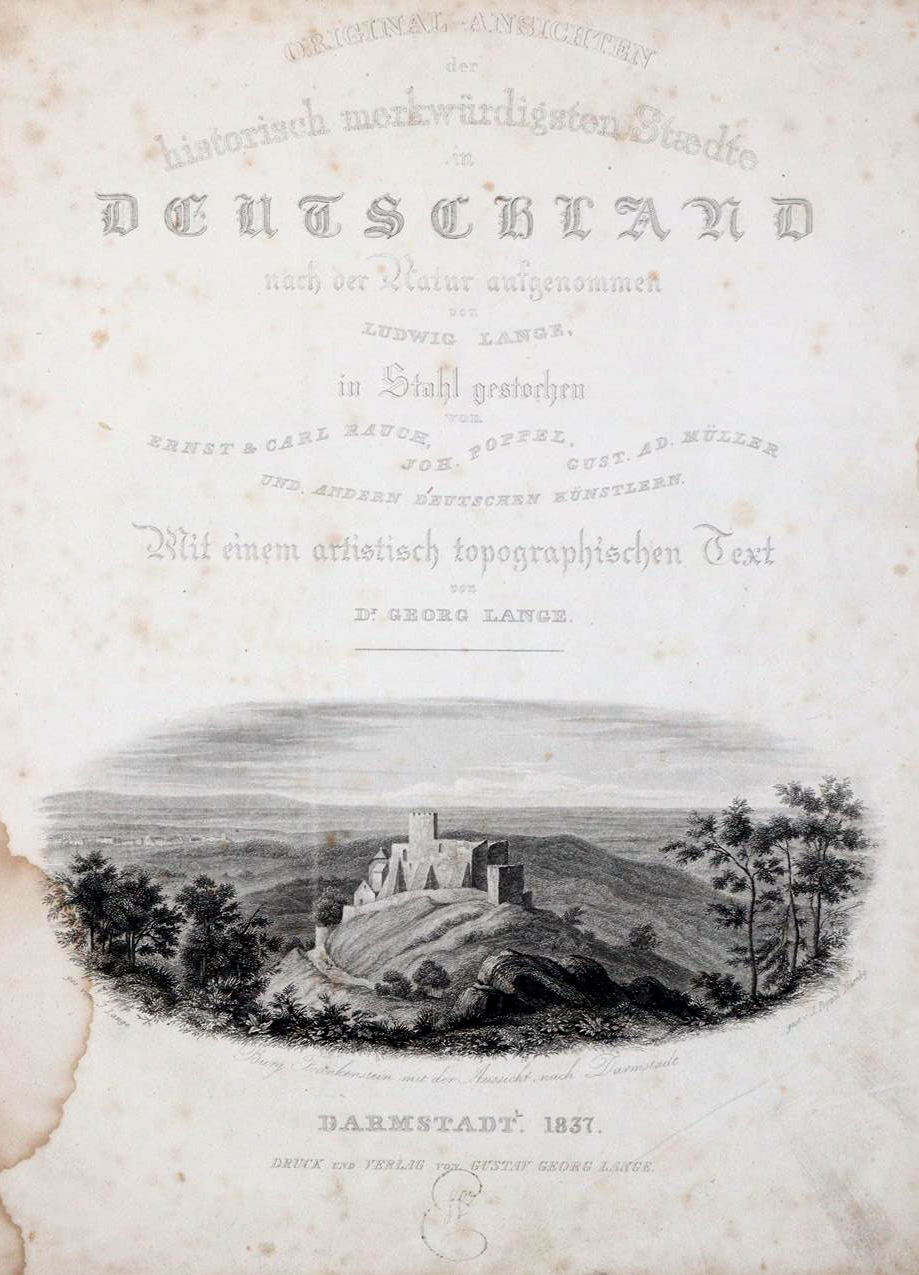 ORIGINAL-ANSICHTEN
der
historisch merkwürdigsten Stædte
in
DEUTSCHLAND
nach der Natur aufgenommen
von
LUDWIG LANGE,
in Stahl gestochen
von
ERNST & CARL RAUCH, JOH. POPPEL, GUST. AD. MÜLLER
UND ANDERN DEUTSCHEN KÜNSTLERN.
Mit einem artistisch topographischen Text
von
Dr. GEORG LANGE.
Lange
Burg Frankenstein mit der Aussicht nach Darmstadt
DARMSTADT. 1837.
DRUCK UND VERLAG VON GUSTAV GEORG LANGE.